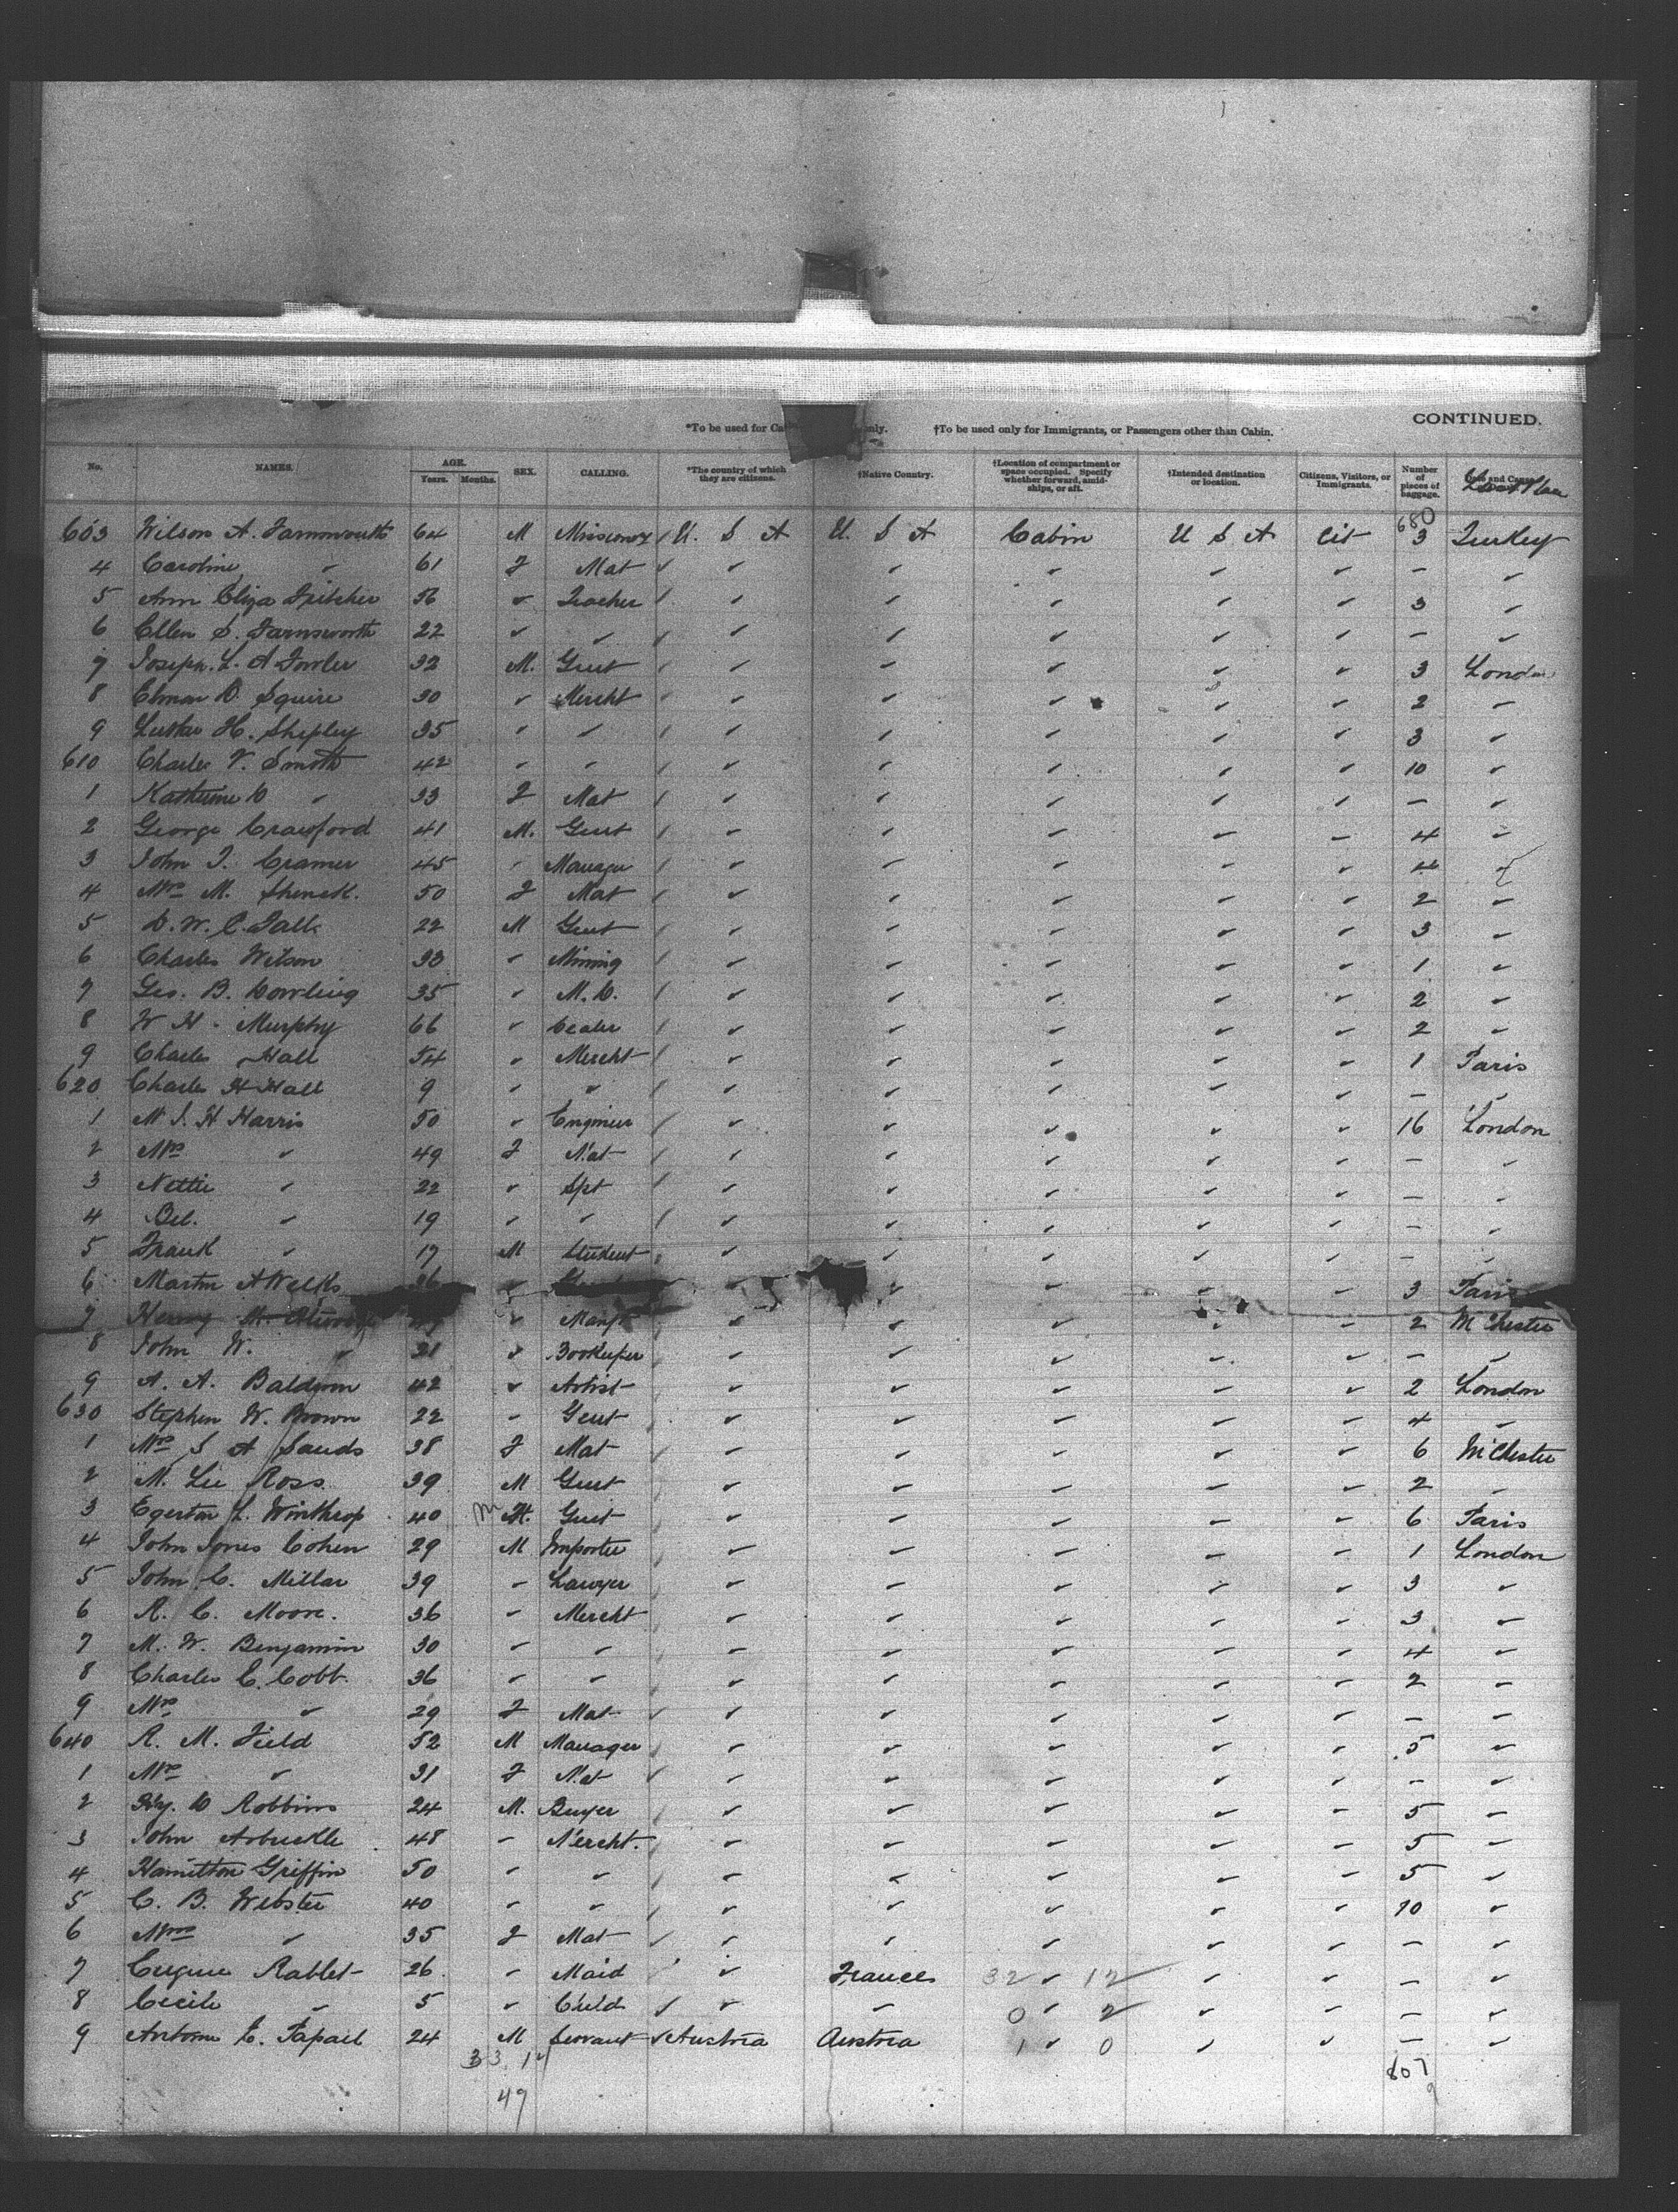 CONTINUED.
*To be used for Ca only. †To be used only for Immigrants, or Passengers other than Cabin.
No. NAMES. AGE. Years. Months. SEX. CALLING. *The country of which they are citizens. †Native Country. †Location of compartment or space occupied. Specify whether forward, amidships, or aft. †Intended destination or location. Citizens, Visitors, or Immigrants. Number of pieces of baggage. Date and Cause
680
603 Wilson A. Farnsworth 64 M Missionary / U. S A U. S A Cabin U S A Cit 3 Turkey
4 Caroline " 61 F Mat " " " " " – "
5 Ann Eliza Fritcher 56 " Teacher / " " " " " 3 "
6 Ellen S. Farnsworth 22 " " " " " " " – "
7 Joseph. L. A Fowler 32 M. Gent " " " " " 3 London
8 Elman D. Squire 30 " Mercht " " " " " 2 "
9 Luther H. Shepley 35 " " / " " " " " 3 "
610 Charles V. Smith 42 " " / " " " " " 10 "
1 Katherine D " 33 F Mat / " " " " " – "
2 George Crawford 41 M. Gent / " " " " " 4 "
3 John T. Cramer 45 " Manager / " " " " " 4 "
4 Mrs M. Shenck. 50 F Mat / " " " " " 2 "
5 D. W. C. Falls 22 M Gent / " " " " " 3 "
6 Charles Wilson 33 " Mining / " " " " " 1 "
7 Geo. B. Cowling 35 " M. D. / " " " " " 2 "
8 W H. Murphy 66 " Dealer / " " " " " 2 "
9 Charles Hall 54 " Mercht / " " " " " 1 Paris
620 Charles H Hall 9 " " / " " " " " – "
1 M J. H Harris 50 " Engineer / " " " " " 16 London
2 Mrs " 49 F Mat / " " " " " – "
3 Nettie " 22 " Spt / " " " " " – "
4 Bel. " 19 " " / " " " " " – "
5 Frank " 17 M Student " " " " " – "
6 Martin A Welks 36 " " " " " " 3 Paris
7 Henry M. " Manfr " " " " " 2 M Chester
8 John W. " 21 " Bookeeper " " " " " – "
9 A. A. Baldwin 42 " Artist " " " " " 2 London
630 Stephen W. Brown 22 " Gent " " " " " 4 "
1 Mrs S A Sands 38 F Mat " " " " " 6 M Chester
2 M. Lee Ross. 39 M Gent " " " " " 2 "
3 Egerton L. Winthrop 40 M Gent " " " " " 6 Paris
4 John Jones Cohen 29 M Importer " " " " " 1 London
5 John C. Millar 39 " Lawyer " " " " " 3 "
6 R. C. Moore. 36 " Mercht " " " " " 3 "
7 M. W. Benjamin 30 " " " " " " " 4 "
8 Charles C. Cobb. 36 " " " " " " " 2 "
9 Mrs " 29 F Mat " " " " " – "
640 R. M. Field 52 M Manager " " " " " 5 "
1 Mrs " 31 F Mat " " " " " – "
2 Hy. D Robbins 24 M. Buyer " " " " " 5 "
3 John Arbuckle 48 " Mercht. " " " " " 5 "
4 Hamilton Griffin 50 " " " " " " " 5 "
5 C. B. Webster 40 " " " " " " " 10 "
6 Mrs " 35 F Mat " " " " " – "
7 Eugene Rablet 26 " Maid " France 32 " 12 " " – "
8 Cecile " 5 " Child " " 0 " 2 " " – "
9 Antome E. 24 M Servant Austria Austria 1 " 0 " " – "
33. 14 807
47 9